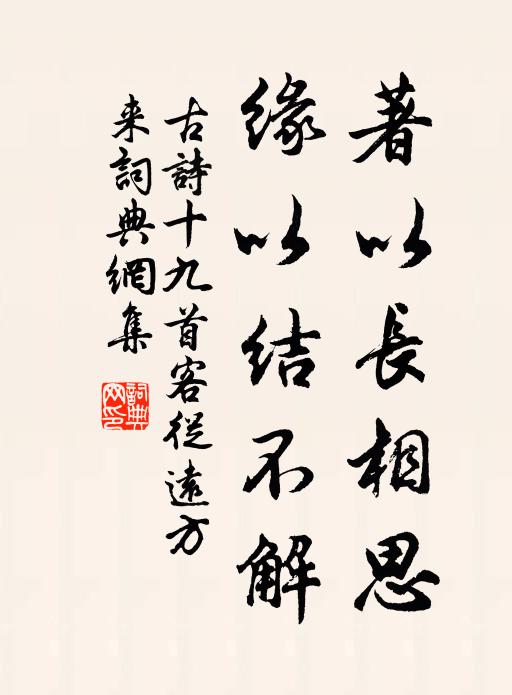 著以長相思
緣以结不解
古詩十九首客從遠方
来詞典網集
詞典
网印